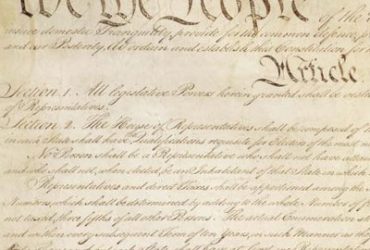 We the People of the
insure domestic Tranquility, provide for the common defence, p
and our Posterity, do ordain and establish this Constitution for
Article
Section. 1. All legislative Powers herein granted shall be vested
of Representatives.
Section. 2. The House of Representatives shall be composed of
in each State shall have the Qualifications requisite for Electors of the most
No Person shall be a Representative who shall not have attain
and who shall not, when elected, be an Inhabitant of that State in which
Representatives and direct Taxes shall be apportioned among the
Numbers, which shall be determined by adding to the whole Number of f
not taxed, three fifths of all other Persons. The actual Enumeration
and within every subsequent Term of ten Years, in such Manner as th